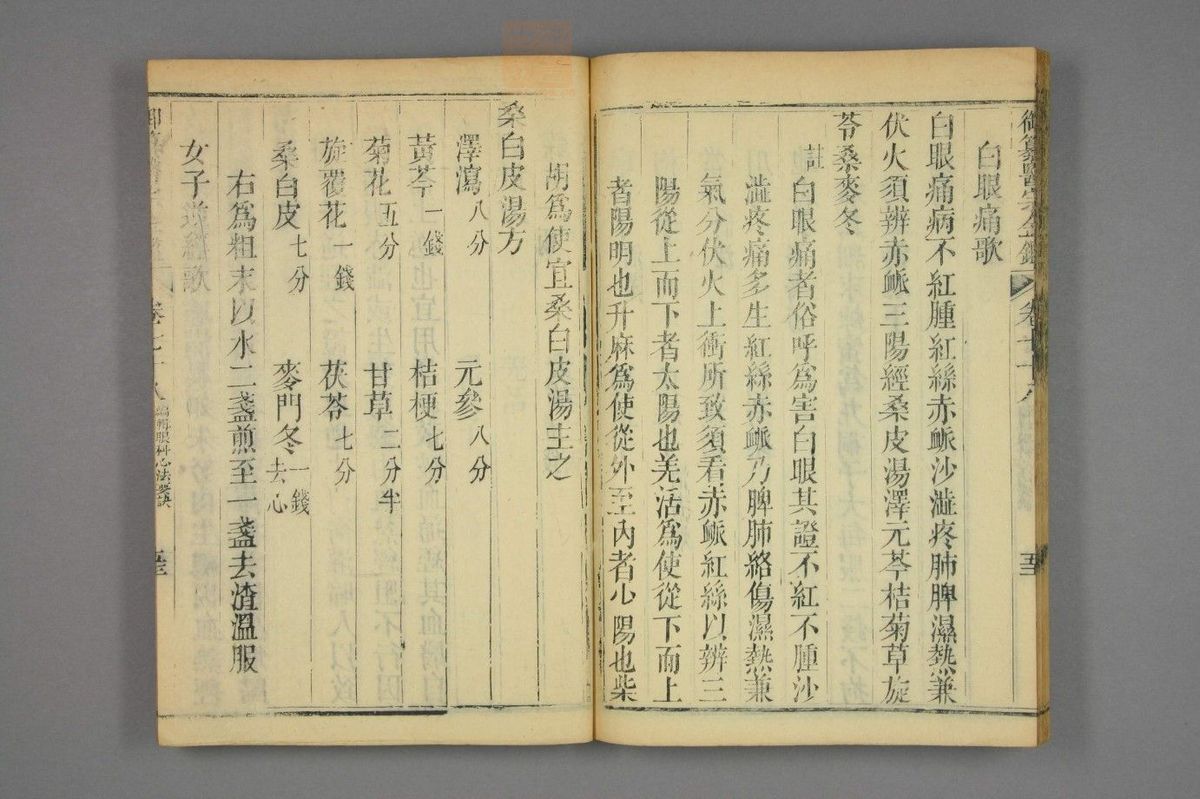 御纂醫宗金鑑 卷七十八 五三
白眼痛歌
白眼痛病不紅腫紅絲赤脈沙澁疼肺脾濕熱兼
伏火須辨赤脈三陽經桑皮湯澤元芩桔菊草旋
苓桑麥冬
註 白眼痛者俗呼爲害白眼其證不紅不腫沙
澁疼痛多生紅絲赤脈乃脾肺絡傷濕熱兼
氣分伏火上衝所致須看赤脈紅絲以辨三
陽從上而下者太陽也羌活爲使從下而上
者陽明也升麻爲使從外至內者少陽也柴
胡爲使宜桑白皮湯主之
桑白皮湯方
澤瀉 八分 元參 八分
黃芩 一錢 桔梗 七分
菊花 五分 甘草 二分半
旋覆花 一錢 茯苓 七分
桑白皮 七分 麥門冬 去心 一錢
右爲粗末以水二盞煎至一盞去渣溫服
女子逆經歌
卷七十八 編輯眼科心法要訣 五三